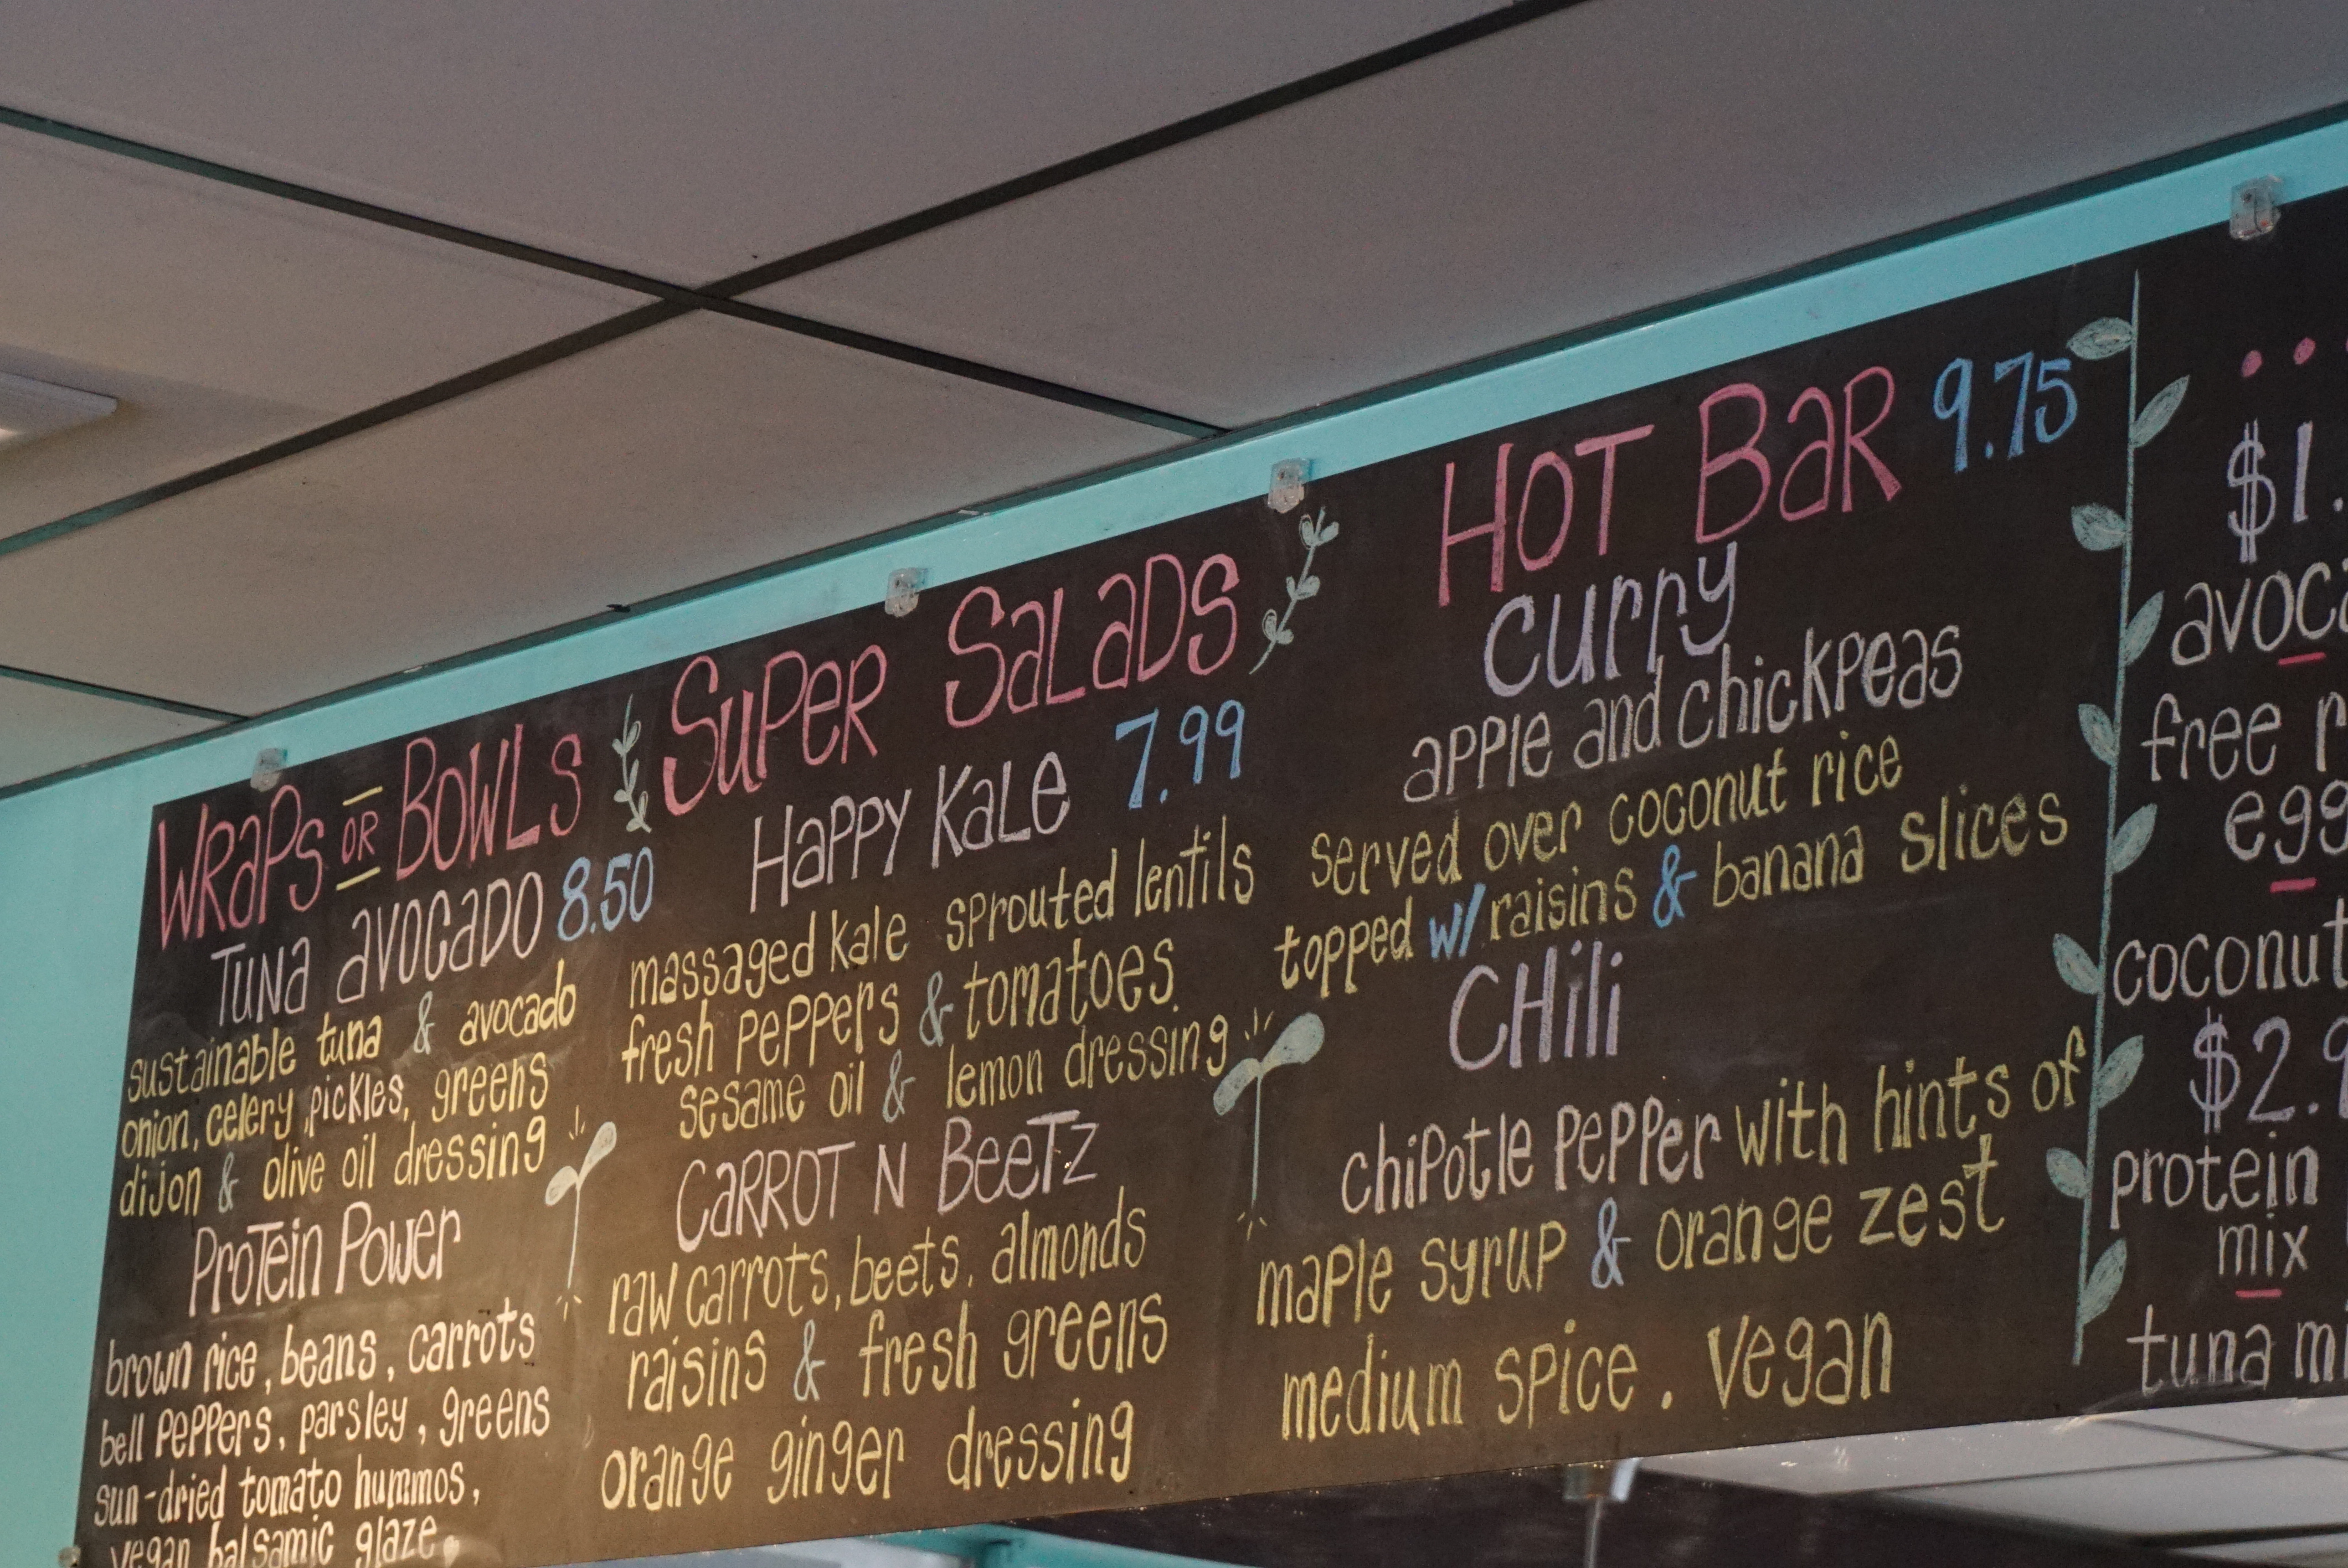 WRaPs OR BOWLS
TUNa aVOCaDO 8.50
sustainable tuna & avocado
onion, celery, pickles, greens
dijon & olive oil dressing
PROTein POWer
brown rice, beans, carrots
bell PePPers, parsley, greens
sun-dried tomato hummos,
vegan balsamic glaze
SuPER SaLaDS
HaPPY KaLe 7.99
massaged kale sprouted lentils
fresh PePPers & tomatoes
sesame oil & lemon dressing
CaRROT N BeeTZ
raw carrots, beets, almonds
raisins & fresh greens
orange ginger dressing
HOT BaR 9.75
curry
apple and chickpeas
served over coconut rice
topped w/ raisins & banana slices
CHili
chipotle PePPer with hints of
maple syrup & orange zest
medium spice. vegan
$1.
free
coconut
$2.9
protein
mix
tuna